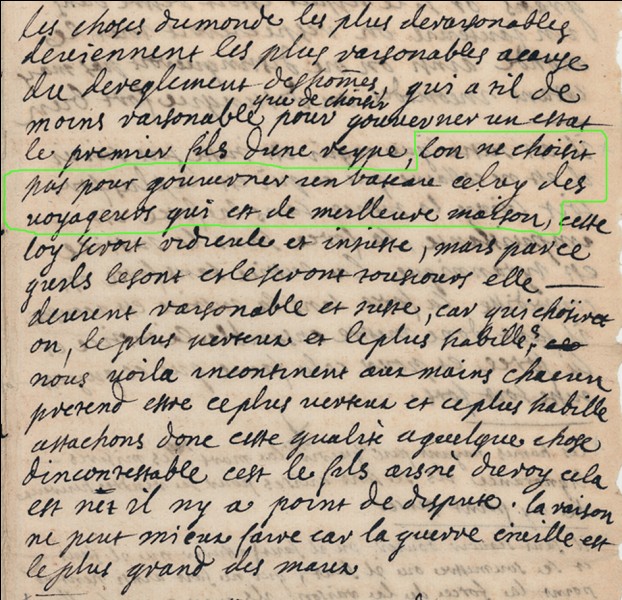 les choses du monde les plus deraisonables
deviennent les plus raisonables a cause
du dereglement des hõmes, qui a til de
moins raisonable que de choisir pour gouverner un estat
le premier fils dune reyne, lon ne choisit
pas pour gouverner un bateau celuy des
voyageurs qui est de meilleure maison, cette
loy seroit ridicule et injuste, mais parce
quils le sont et le seront tousjours elle
devient raisonable et juste, car qui choisira
on, le plus vertueux et le plus habille,
nous voila incontinent aux mains chacun
pretend estre ce plus vertueux et ce plus habille
attachons donc cette qualité a quelque chose
dincontestable cest le fils aisné du roy cela
est net il ny a point de dispute. la raison
ne peut mieux faire car la guerre civille est
le plus grand des maux